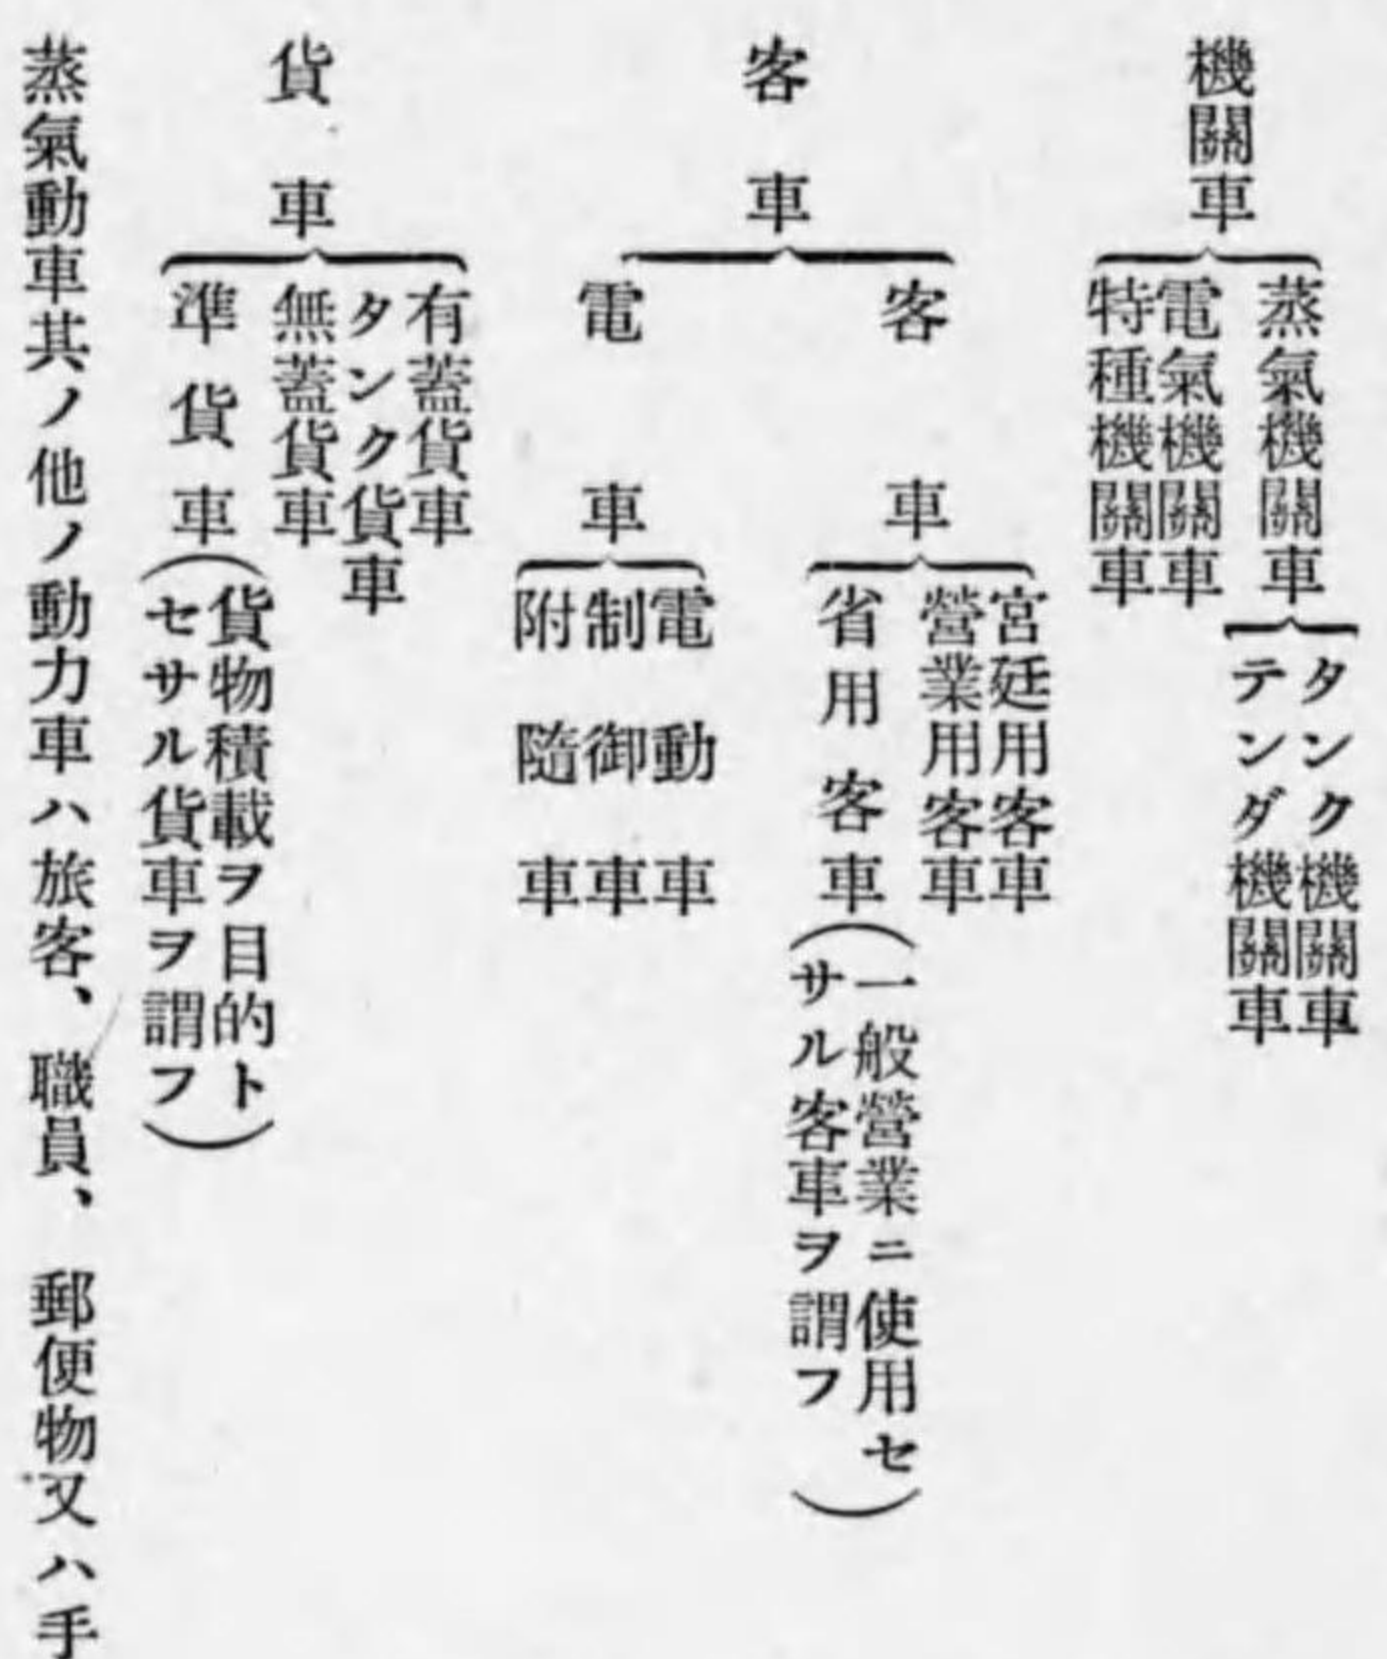 機關車
蒸氣機關車
タンク機關車
テンダ機關車
電氣機關車
特種機關車
客車
客車
宮廷用客車
營業用客車
省用客車
(一般營業ニ使用セ
サル客車ヲ謂フ)
電車
電動車
制御車
附隨車
貨車
有蓋貨車
タンク貨車
無蓋貨車
準貨車
(貨物積載ヲ目的ト
セサル貨車ヲ謂フ)
蒸氣動車其ノ他ノ動力車ハ旅客、職員、郵便物又ハ手